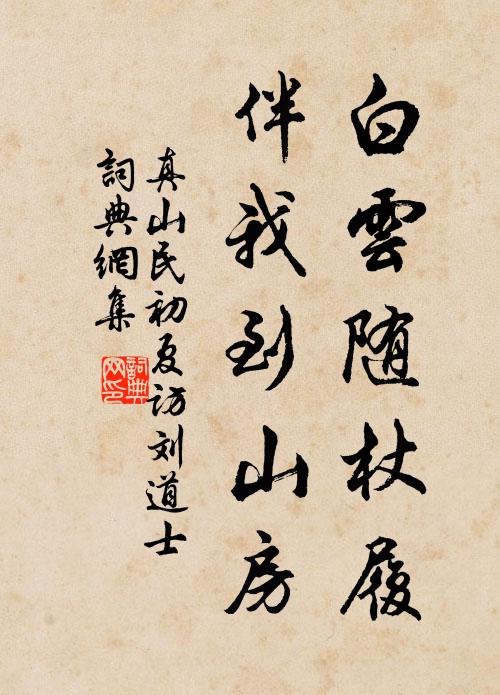 白雲随杖履
伴我到山房
真山民初夏访刘道士
詞典網集
詞典
网印